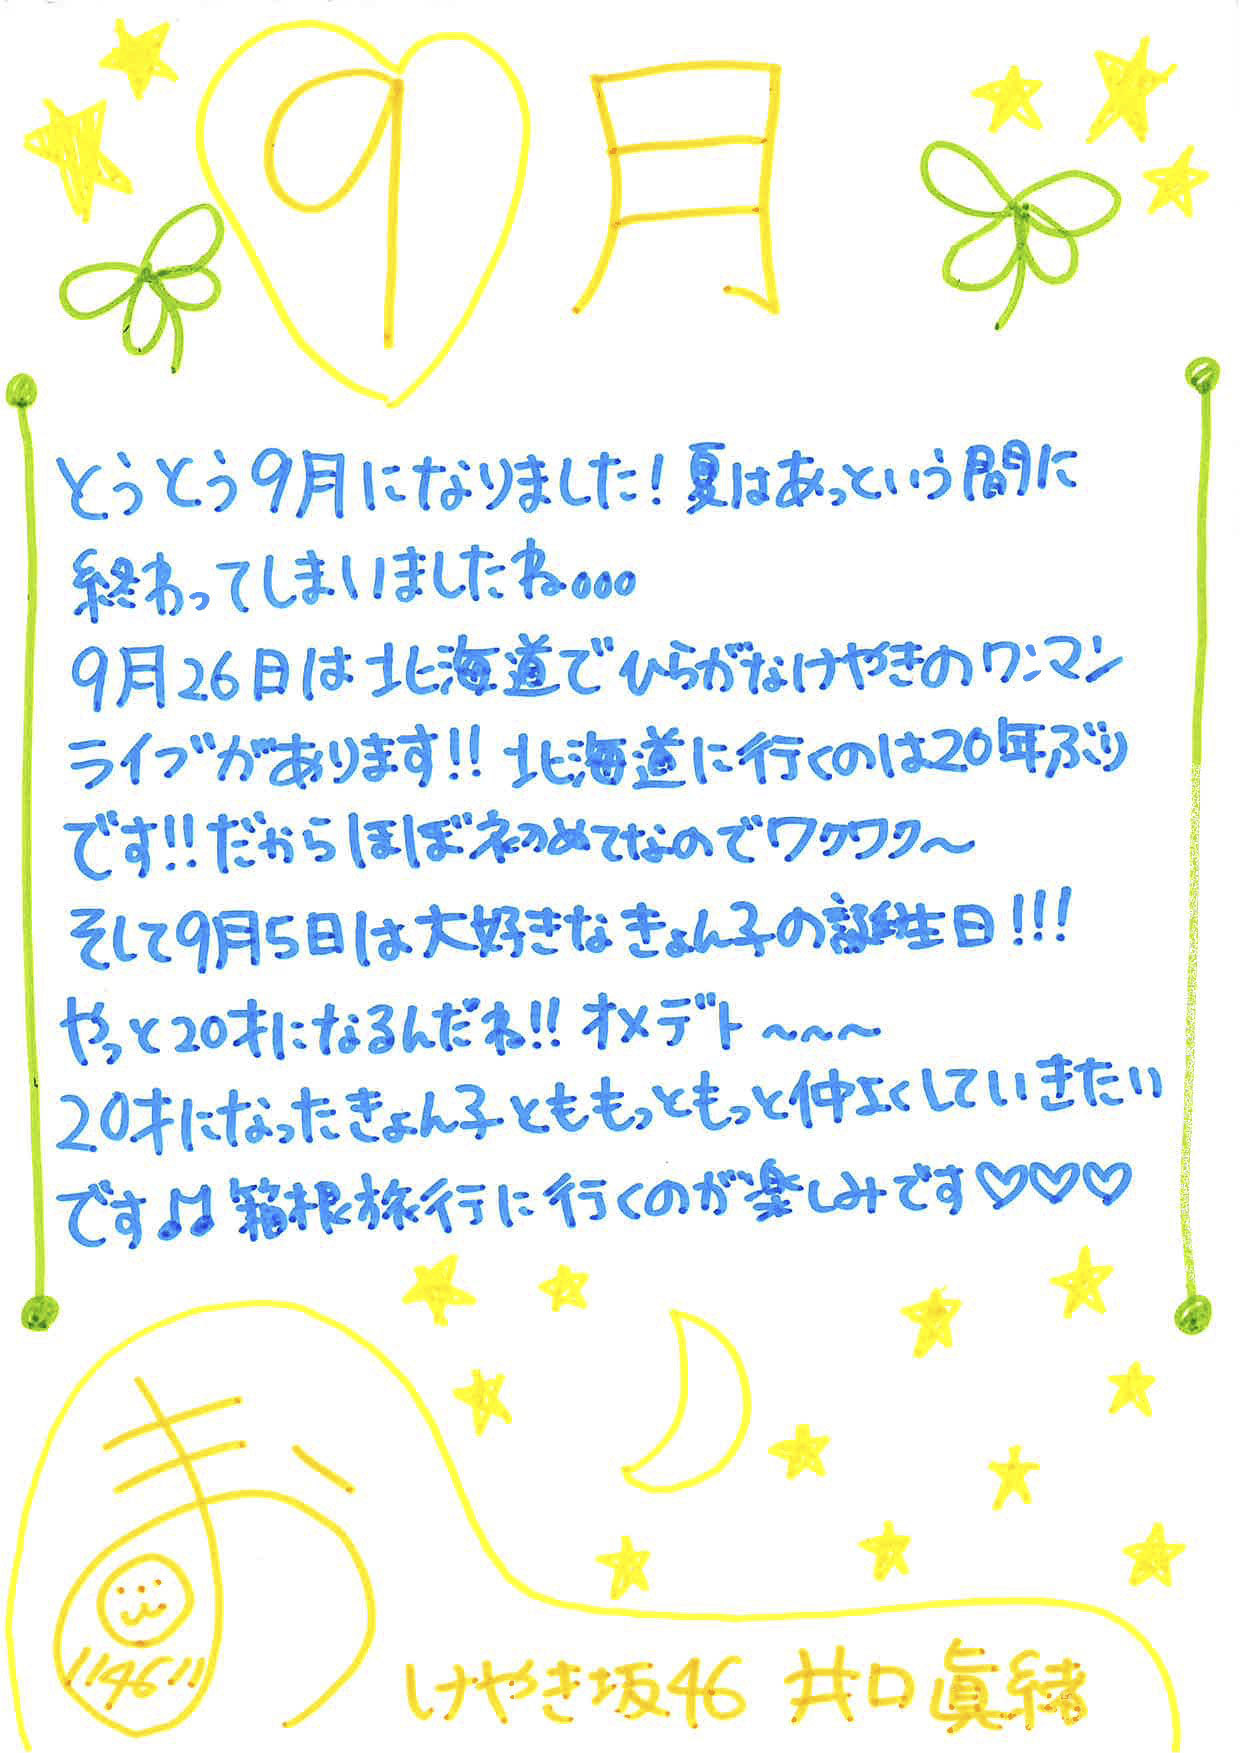 9月
とうとう9月になりました！夏はあっという間に
終わってしまいましたね。。。
9月26日は北海道でひらがなけやきのワンマン
ライブがあります!!北海道に行くのは20年ぶり
です!!だからほぼ初めてなのでワクワク〜
そして9月5日は大好きなきょん子の誕生日!!!
やっと20才になるんだね!!オメデト〜〜〜
20才になったきょん子とももっともっと仲よくしていきたい
です♪♫箱根旅行に行くのが楽しみです♡♡♡
まお
46
けやき坂46 井口眞緒